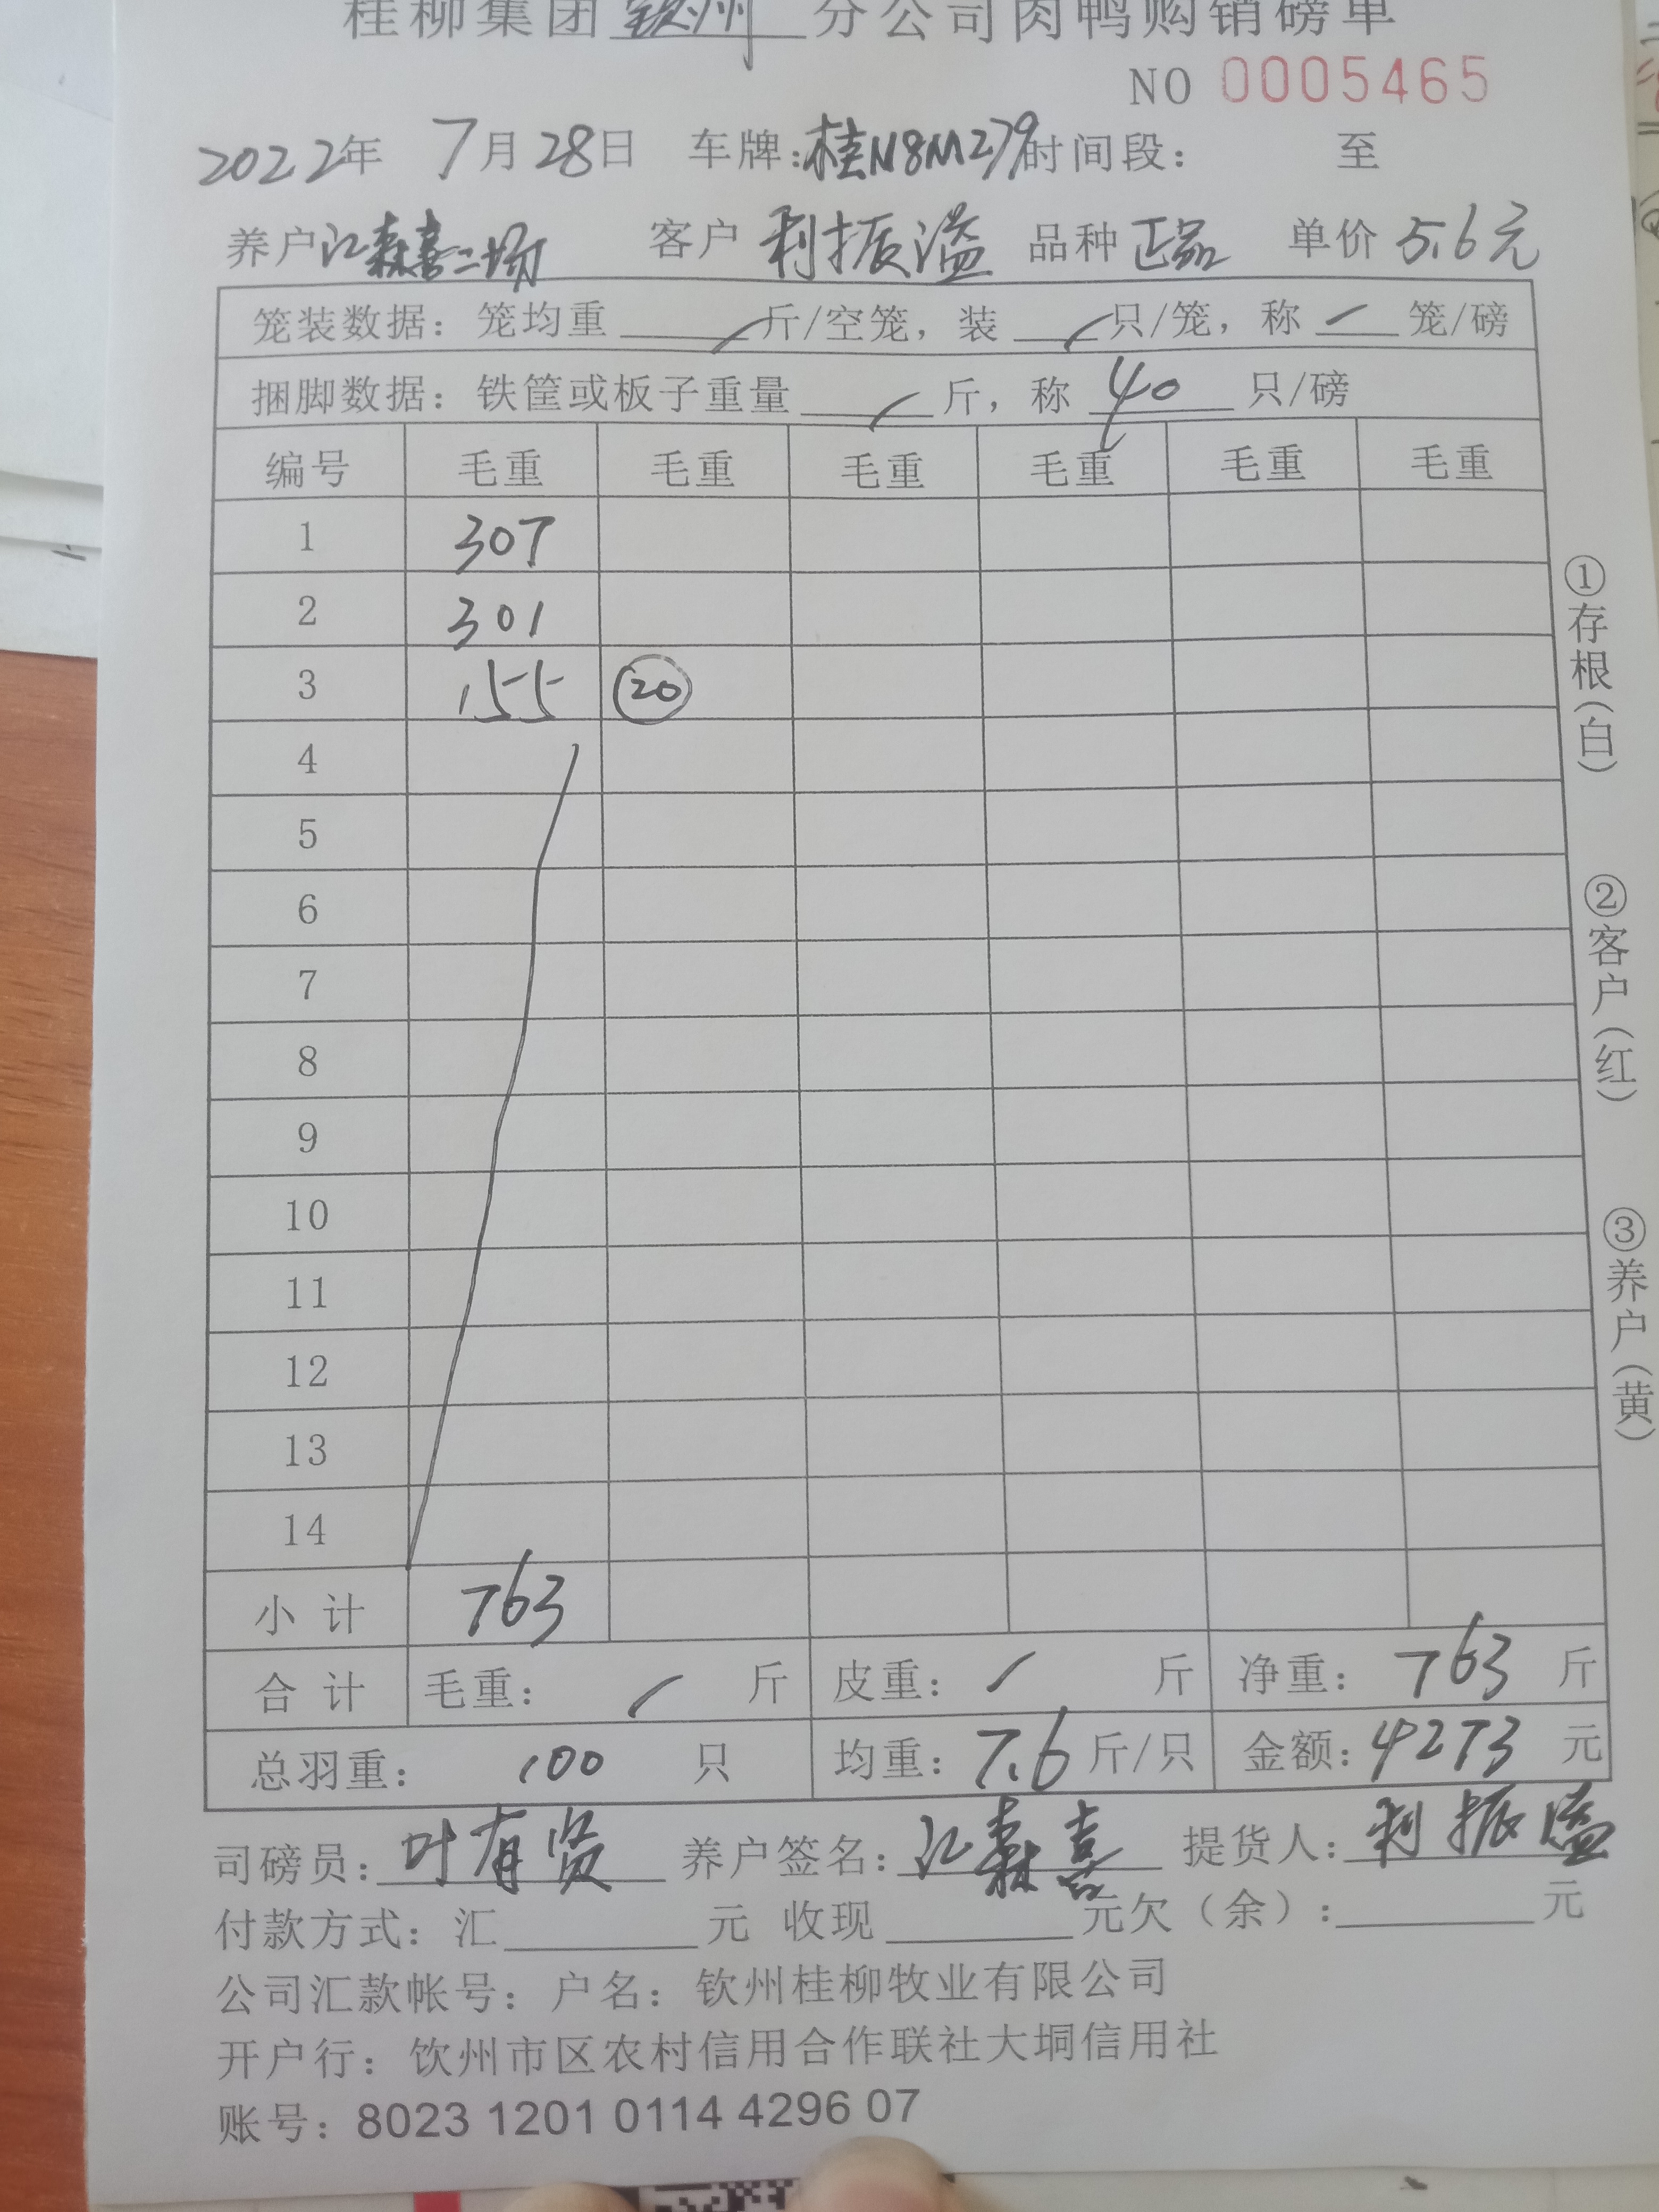 桂柳集团钦州分公司肉鸭购销磅单
NO 0005465
2022年 7月28日 车牌:桂N8M279时间段: 至
养户江森喜二场 客户 利振溢 品种 正品 单价 5.6元
笼装数据: 笼均重 / 斤/空笼, 装 / 只/笼, 称 / 笼/磅
捆脚数据: 铁筐或板子重量 / 斤, 称 40 只/磅
编号 毛重 毛重 毛重 毛重 毛重 毛重
1 307
2 301
3 155 20
4
5
6
7
8
9
10
11
12
13
14
小计 763
合计 毛重: / 斤 皮重: / 斤 净重: 763 斤
总羽重: 100 只 均重: 7.6 斤/只 金额: 4273 元
司磅员: 叶有贤 养户签名: 江森喜 提货人: 利振溢
付款方式: 汇 元 收现 元欠(余): 元
公司汇款帐号: 户名: 钦州桂柳牧业有限公司
开户行: 钦州市区农村信用合作联社大垌信用社
账号: 8023 1201 0114 4296 07
①存根(白)
②客户(红)
③养户(黄)